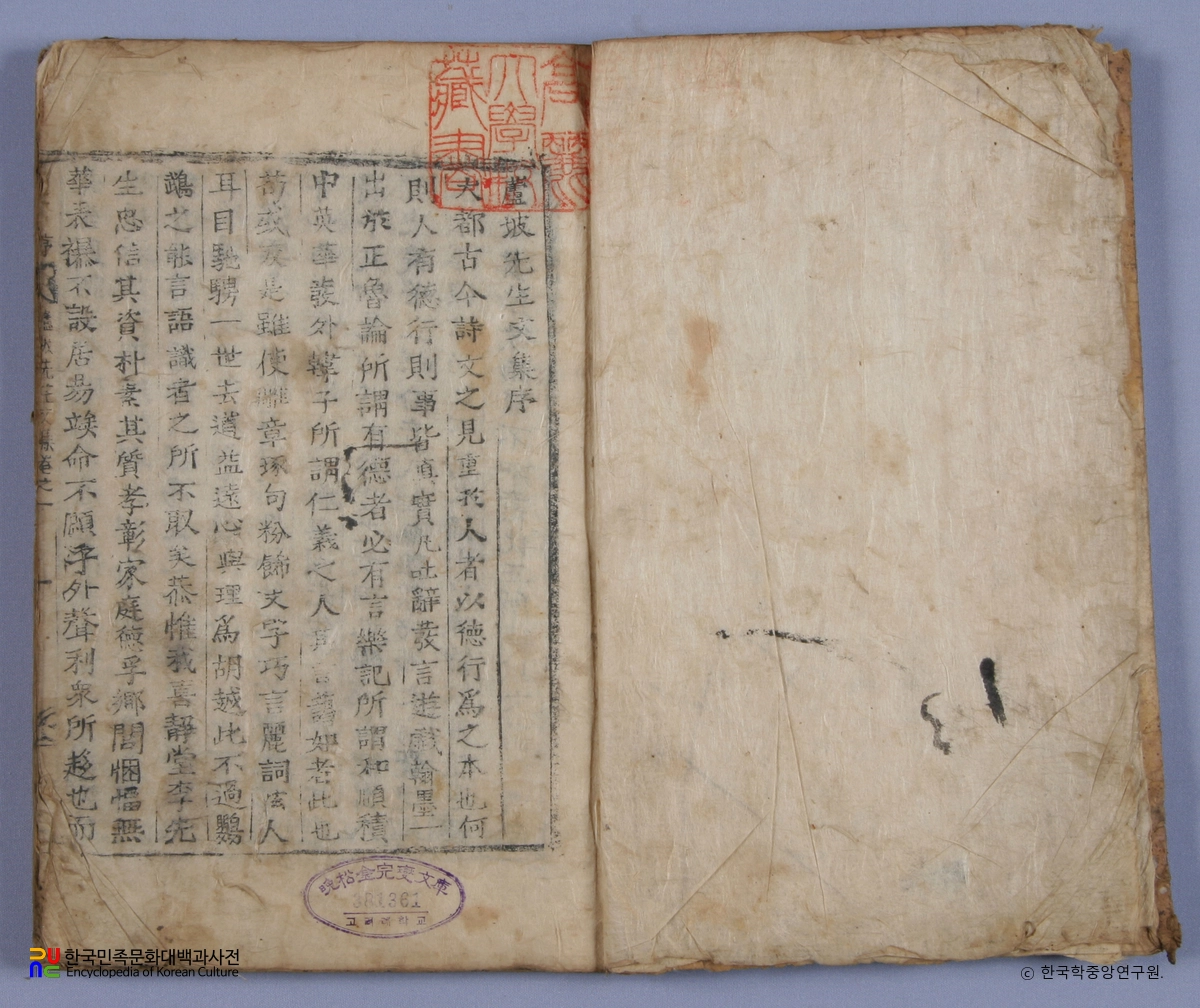 蘆坡先生文集序
夫都古今詩文之見重於人者以德行爲之本也何
則人有德行則事皆眞實凡吐辭發言遊戲翰墨一
出於正魯論所謂有德者必有言樂記所謂和順積
中英華發外韓子所謂仁義之人其言藹如者此也
苟或反是雖使雕章琢句粉飾文字巧言麗詞眩人
耳目馳騁一世去道益遠心與理爲胡越此不過鸚
鵡之能言語識者之所不取矣恭惟我喜靜堂李先
生忠信其資朴素其質孝彰家庭德孚鄕閭悃愊無
華表襮不設居易竢命不願乎外聲利衆所趍也而
高麗大學校藏書
晩松金完燮文庫
381361
고려대학교
한국민족문화대백과사전
Encyclopedia of Korean Culture
ⓒ 한국학중앙연구원.